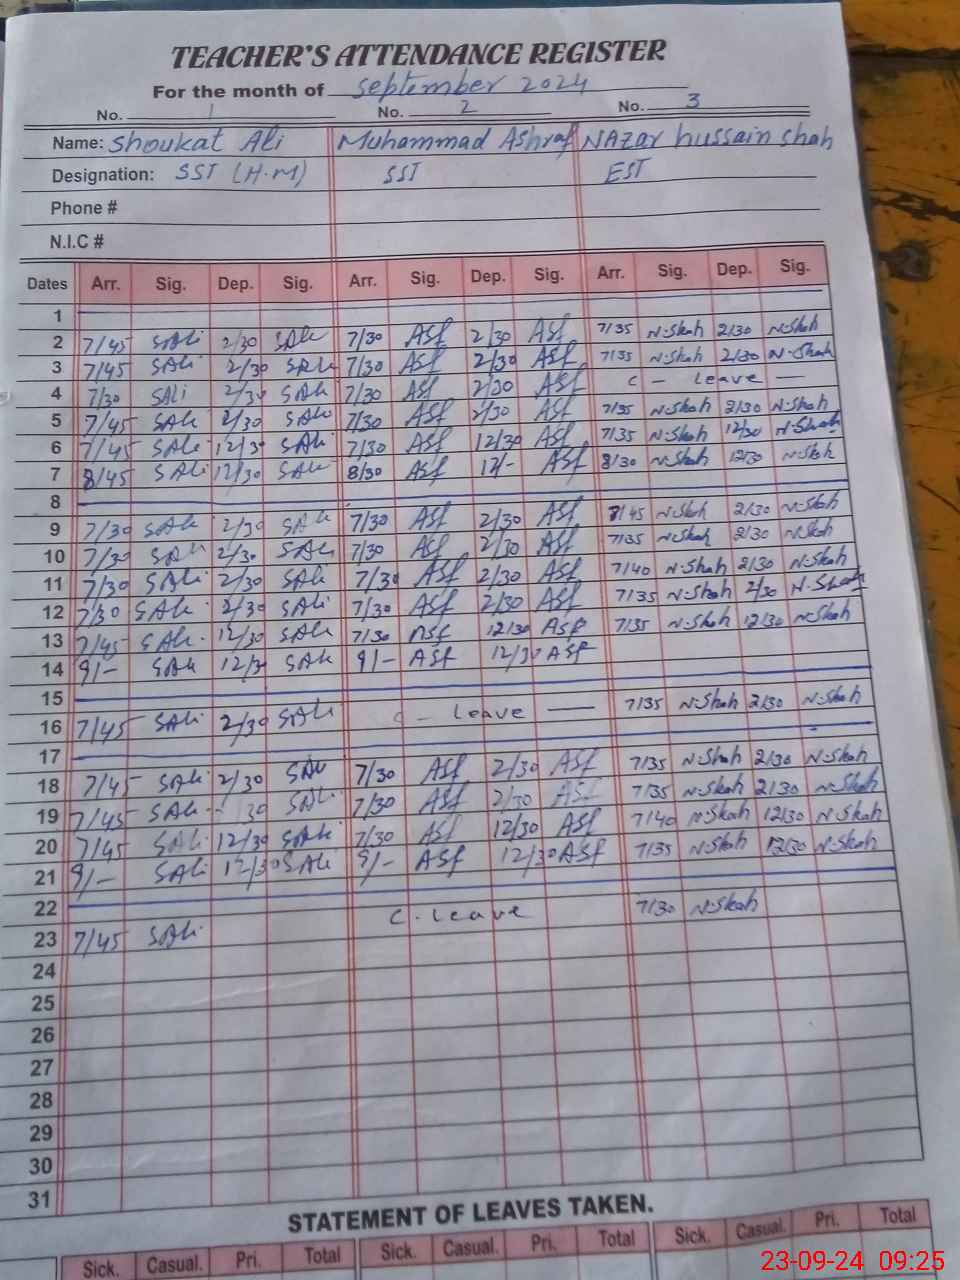 TEACHER'S ATTENDANCE REGISTER
For the month of September 2024
No. 1 No. 2 No. 3
Name: Shoukat Ali Muhammad Ashraf NAZar hussain shah
Designation: SST (H.M) SST EST
Phone #
N.I.C #
Dates Arr. Sig. Dep. Sig. Arr. Sig. Dep. Sig. Arr. Sig. Dep. Sig.
1
2 7/45 SAli 2/30 SAli 7/30 ASf 2/30 ASf 7/35 N-Shah 2/30 N-Shah
3 7/45 SAli 2/30 SALi 7/30 ASf 2/30 ASf 7/35 N-Shah 2/30 N-Shah
4 7/30 SALi 2/30 SAli 7/30 ASf 2/30 ASf C - Leave -
5 7/45 SAli 2/30 SAli 7/30 ASf 2/30 ASf 7/35 N-Shah 2/30 N-Shah
6 7/45 SAli 12/30 SAli 7/30 ASf 12/30 ASf 7/35 N-Shah 12/30 N-Shah
7 8/45 SAli 12/30 SAli 8/30 ASf 12/- ASf 8/30 N-Shah 12/30 N-Shah
8
9 7/30 SAli 2/30 SAli 7/30 ASf 2/30 ASf 7/45 N-Shah 2/30 N-Shah
10 7/30 SAli 2/30 SAli 7/30 ASf 2/30 ASf 7/35 N-Shah 2/30 N-Shah
11 7/30 SAli 2/30 SAli 7/30 ASf 2/30 ASf 7/40 N-Shah 2/30 N-Shah
12 7/30 SAli 2/30 SALi 7/30 ASf 2/30 ASf 7/35 N-Shah 2/30 N-Shah
13 7/45 SALi 12/30 SAli 7/30 ASf 12/30 ASf 7/35 N-Shah 12/30 N-Shah
14 9/- SAli 12/30 SAli 9/- ASf 12/30 ASf
15
16 7/45 SALi 2/30 SALi C - Leave — 7/35 N-Shah 2/30 N-Shah
17
18 7/45 SALi 2/30 SAli 7/30 ASf 2/30 ASf 7/35 N-Shah 2/30 N-Shah
19 7/45 SALi 30 SALi 7/30 ASf 2/30 ASf 7/35 N-Shah 2/30 N-Shah
20 7/45 SALi 12/30 SALi 7/30 ASf 12/30 ASf 7/40 N-Shah 12/30 N-Shah
21 9/- SALi 12/30 SALi 9/- ASf 12/30 ASf 7/35 N-Shah 12/30 N-Shah
22
23 7/45 SALi C. Leave 7/30 N-Shah
24
25
26
27
28
29
30
31
STATEMENT OF LEAVES TAKEN.
Sick. Casual. Pri. Total Sick. Casual. Pri. Total Sick. Casual. Pri. Total
23-09-24 09:25